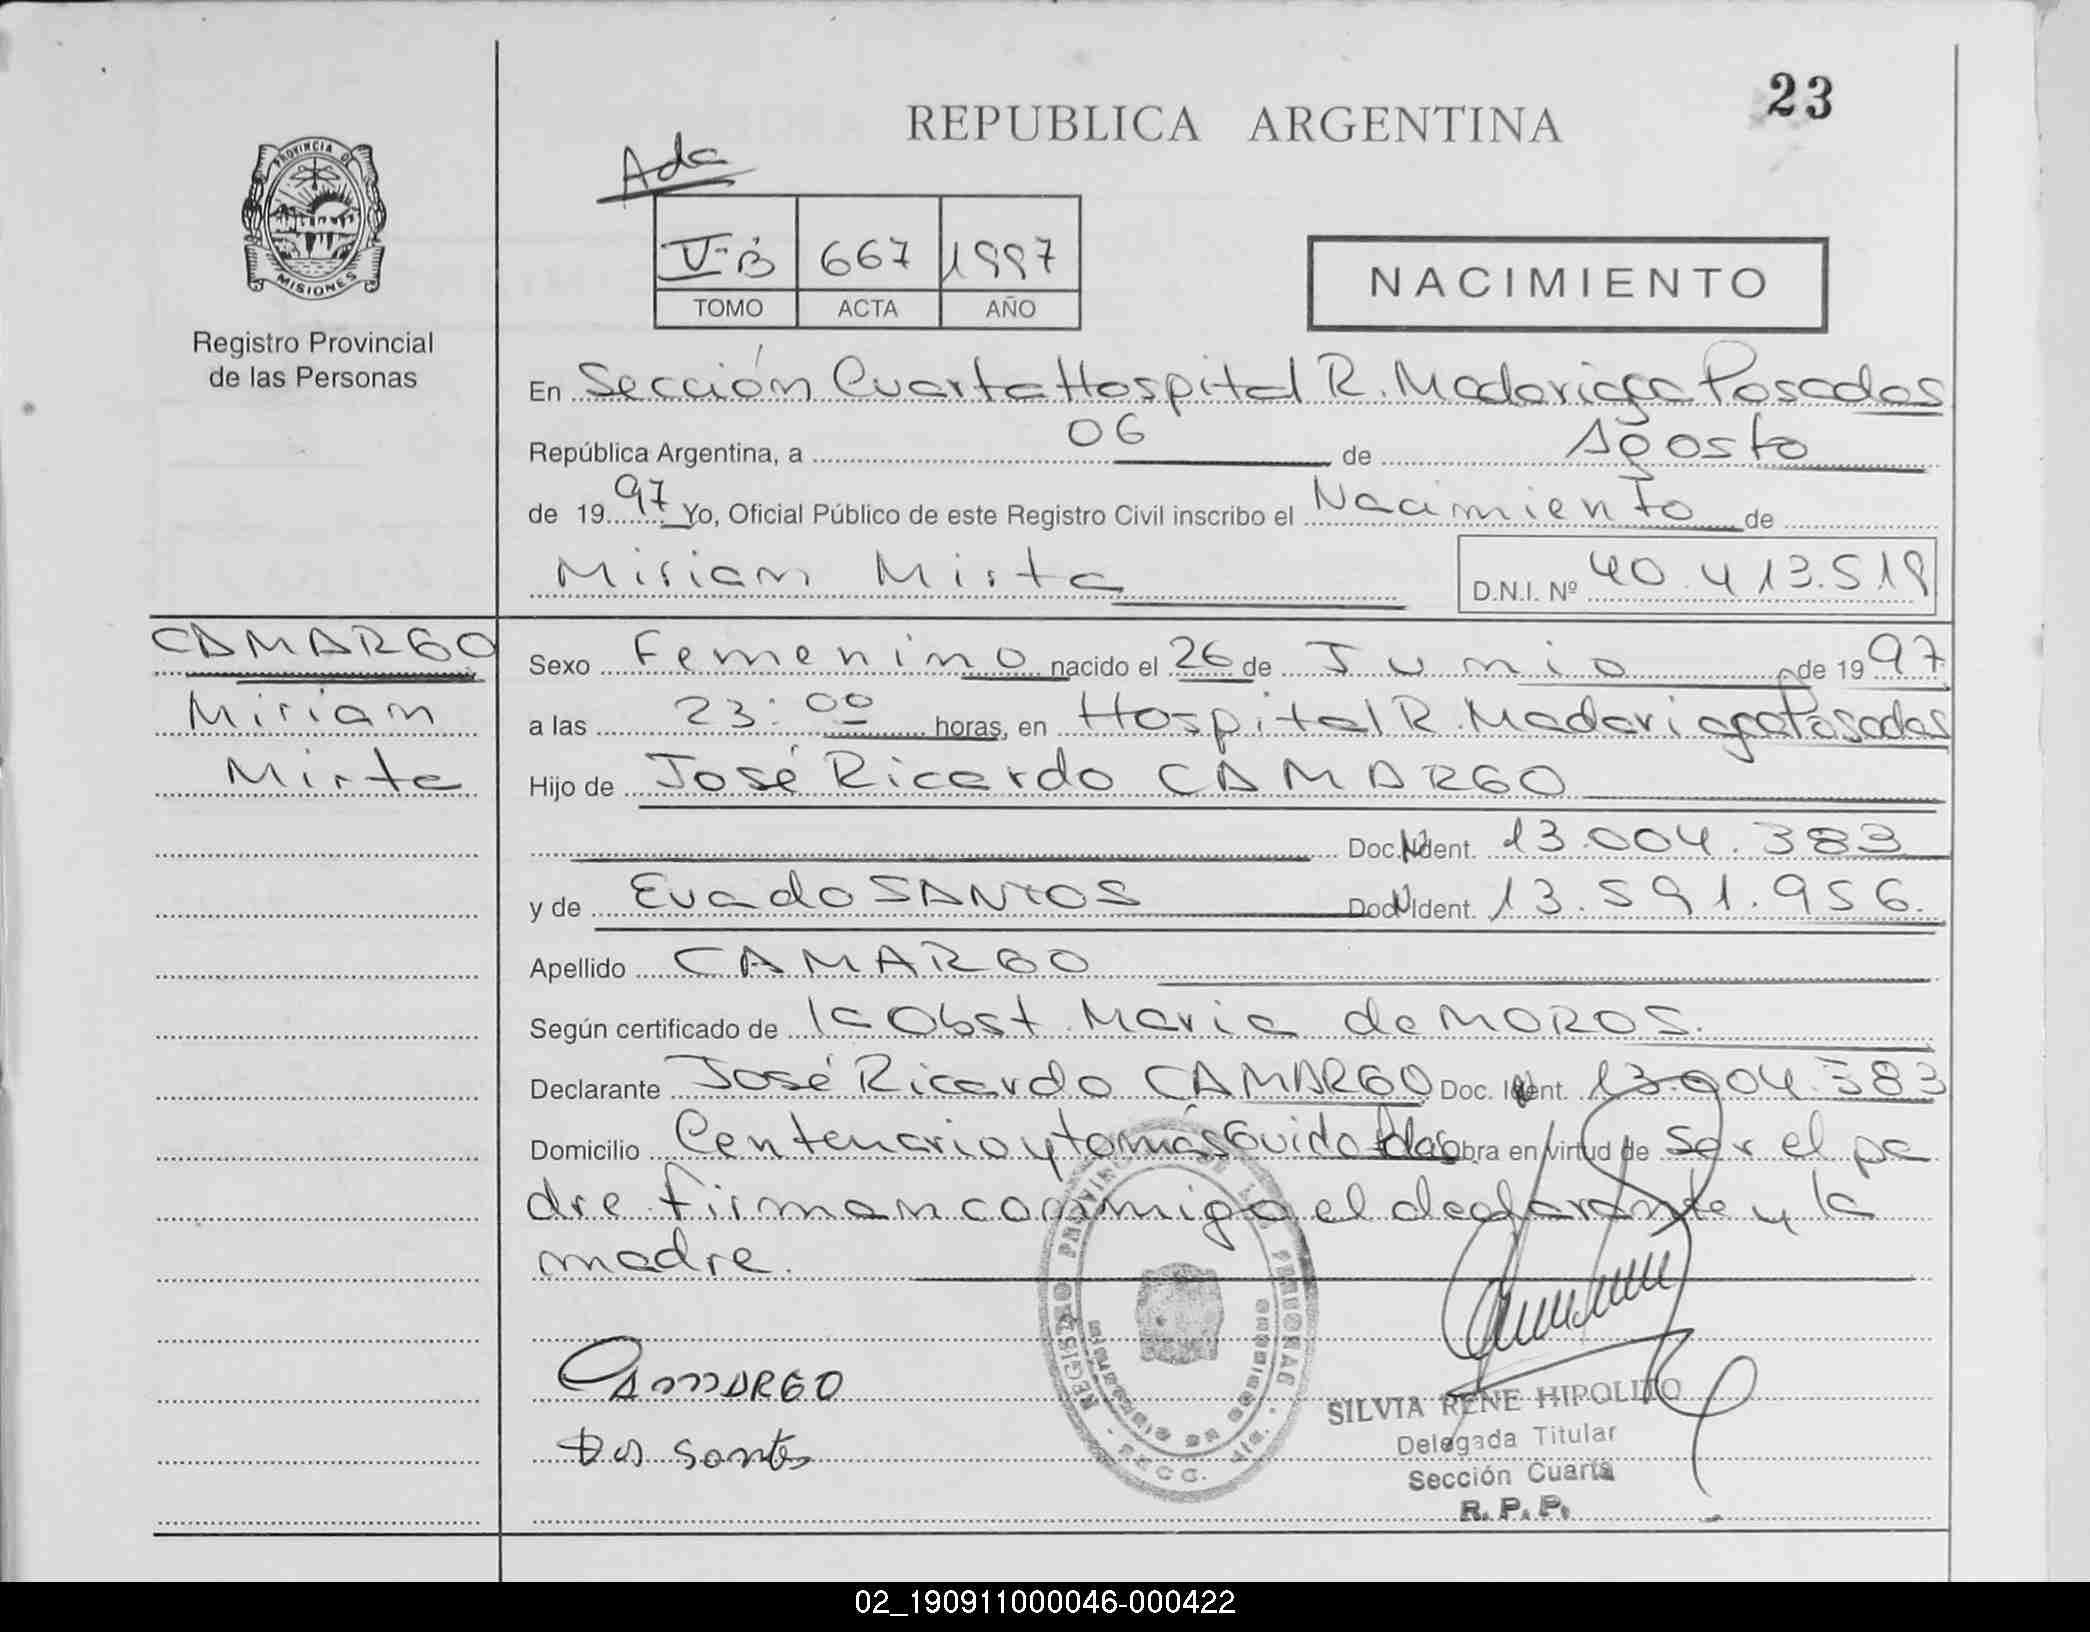 23
REPUBLICA ARGENTINA
Ada
PROVINCIA D
MISIONES
Registro Provincial
de las Personas
V-B 667 1997
TOMO ACTA AÑO
NACIMIENTO
En Sección Cuarta Hospital R. Madariaga Posadas
República Argentina, a 06 de Agosto
de 1997 Yo, Oficial Público de este Registro Civil inscribo el Nacimiento de
Miriam Mirta D.N.I. Nº 40.413.519
CAMARGO
Miriam
Mirta
Sexo Femenino nacido el 26 de Junio de 1997
a las 23:00 horas, en Hospital R. Madariaga Posadas
Hijo de José Ricardo CAMARGO
Doc. Ident. 13.004.383
y de Eva do SANTOS Doc. Ident. 13.591.956.
Apellido CAMARGO
Según certificado de la Obst. Maria de MOROS.
Declarante José Ricardo CAMARGO Doc. Ident. 13.004.383
Domicilio Centenario y tomás Guido Pdas Obra en virtud de ser el pa
dre firman conmigo el declarante y la
madre.
CAMARGO
Dos Santos
REGISTRO PROVINCIAL DE LAS PERSONAS
SECC.
SILVIA RENE HIPOLITO
Delegada Titular
Sección Cuarta
R. P. P.
02_190911000046-000422